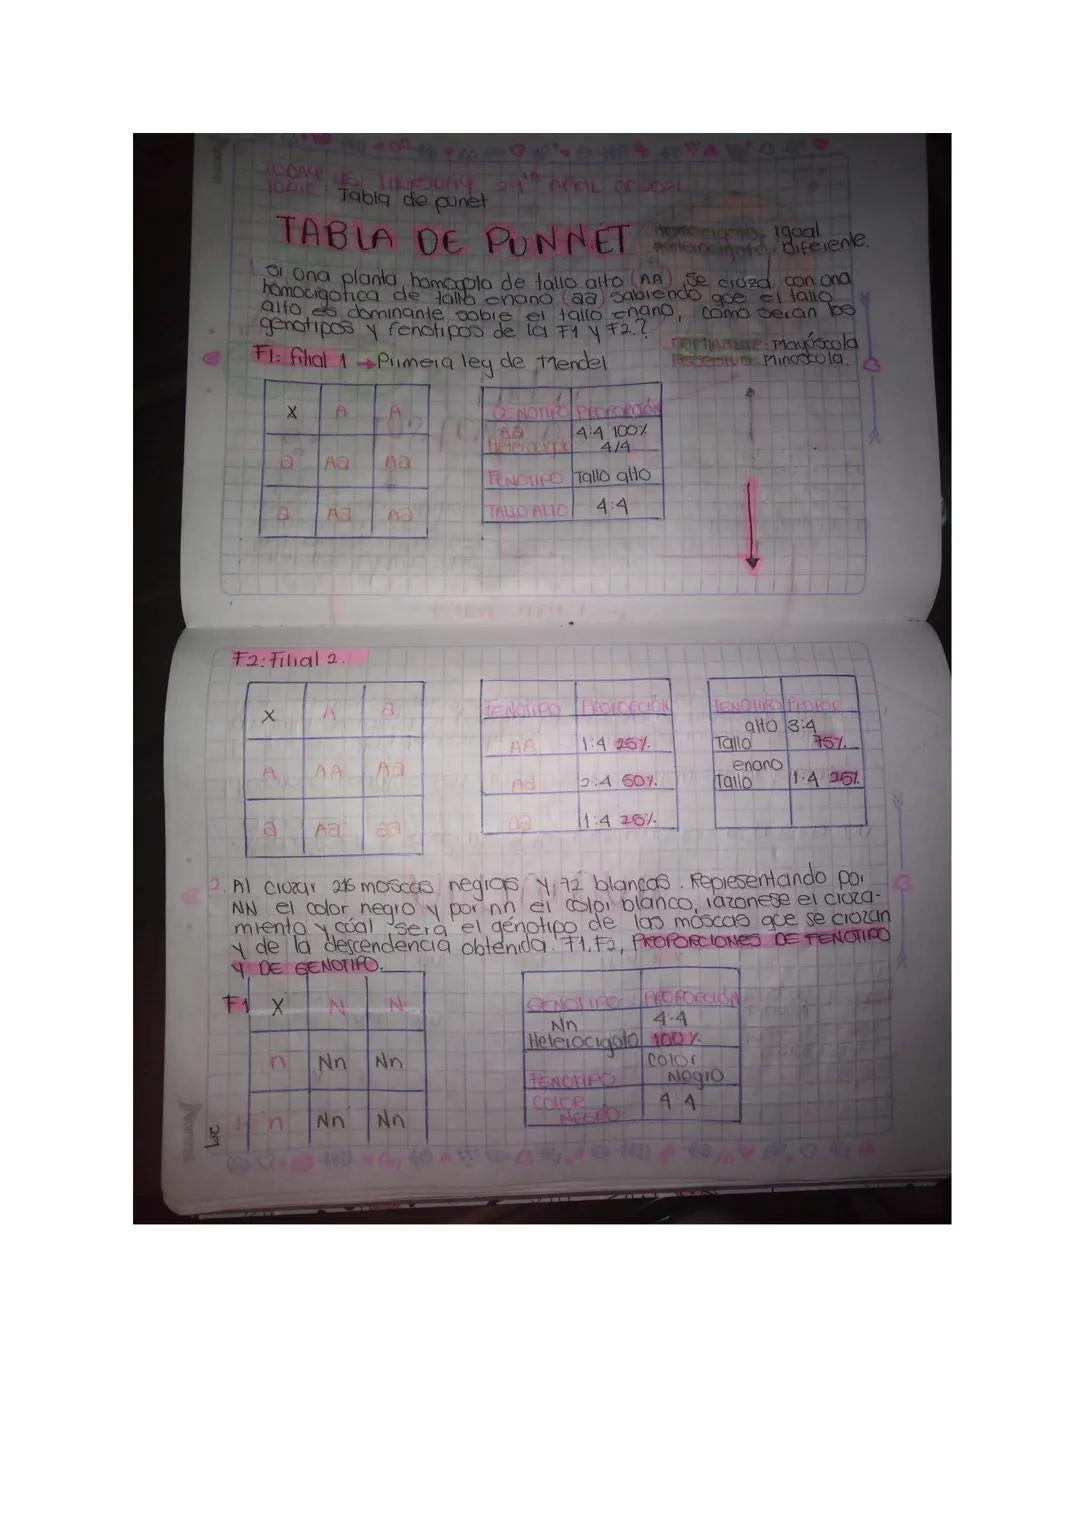 TODAY IS THURSDAY 29th APRIL OF 2021
TOPIC: Tabla de punet
TABLA DE PUNNET
Homocigoto: igual
Heterocigoto: Diferente.
1. Si una planta homocigoto de tallo alto (AA), se cruza con una
homocigotica de tallo enano (aa) sabiendo que el tallo
alto es dominante sobre el tallo enano, como serán los
genotipos y fenotipos de la F1 y F2.?
Dominante: Mayúscula
Recesivo: Minúscula.
F1: filial 1 → Primera ley de Mendel
X A A
a Aa Aa
a Aa Aa
GENOTIPO PROPORCIÓN
Aa 4:4 100%
Heterocigoto 4/4
FENOTIPO Tallo alto
TALLO ALTO 4:4
F2: Filial 2.
X A a
A AA Aa
a Aa aa
FENOTIPO PROPORCIÓN
AA 1:4 25%
Aa 2:4 50%
aa 1:4 25%
FENOTIPO PROPOR
alto 3:4
Tallo 75%
enano
Tallo 1:4 25%
2. Al cruzar 216 moscas negras y 72 blancas. Representando por
NN el color negro y por nn el color blanco, razonese el cruza-
miento y cúal será el génotipo de las moscas que se cruzan
y de la descendencia obtenida. F1, F2, PROPORCIONES DE FENOTIPO
Y DE GENOTIPO.
F1 X N N
n Nn Nn
n Nn Nn
GENOTIPO PROPORCIÓN
Nn 4:4
Heterocigoto 100%
FENOTIPO Color Negro
COLOR NEGRO 4:4
Norma
29